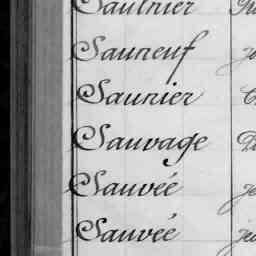 Saulnier
Sauneuf
Saunier
Sauvage
Sauvée
Sauvée